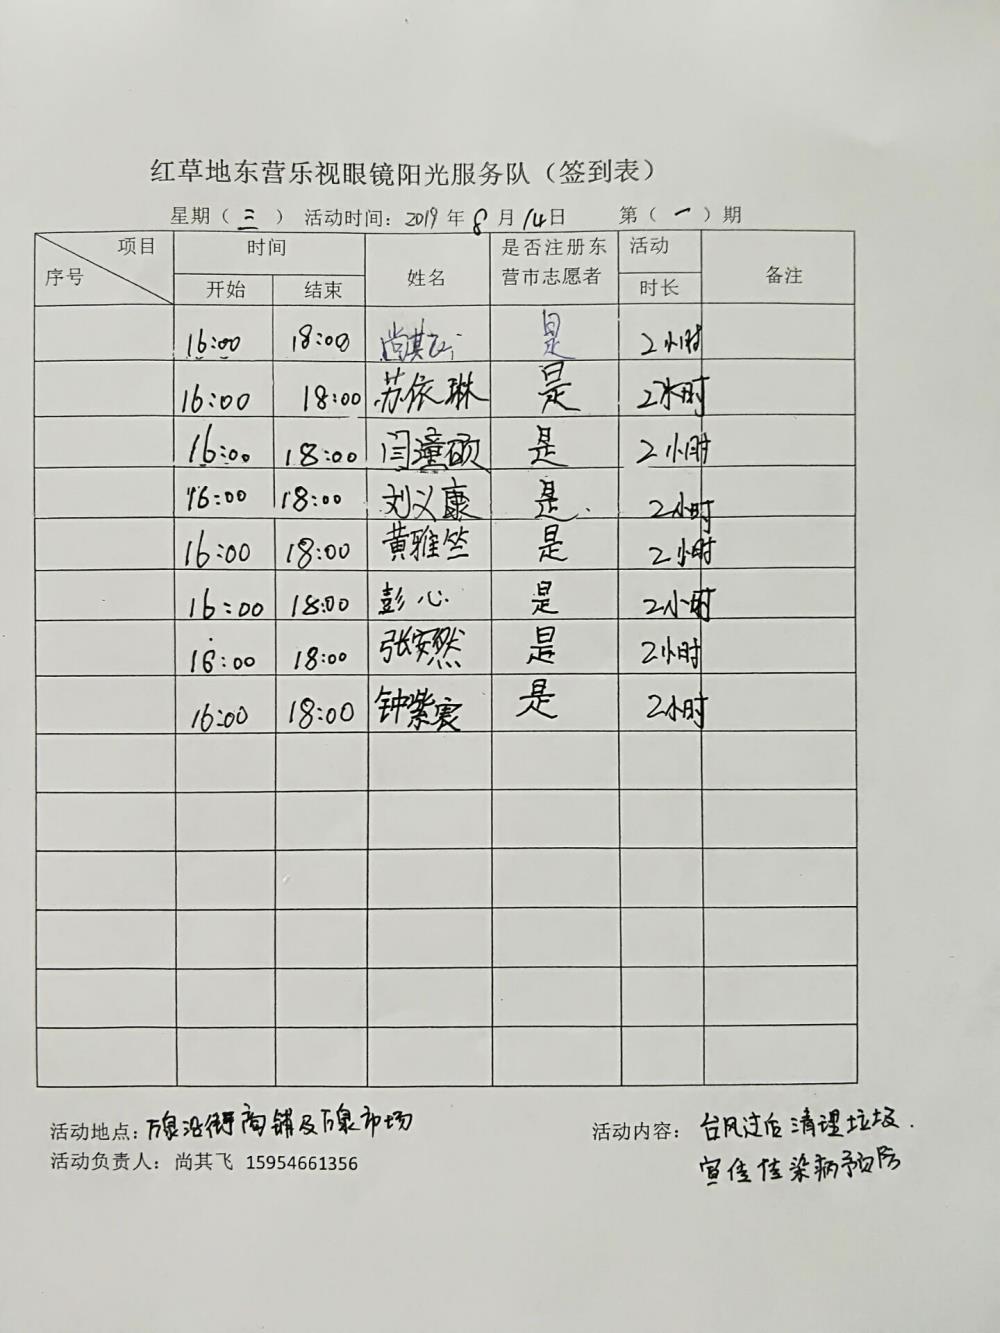 红草地东营乐视眼镜阳光服务队（签到表）
星期（三） 活动时间：2019年8月14日 第（一）期
项目 时间 是否注册东 活动
序号 姓名 营市志愿者 备注
开始 结束 时长
16:00 18:00 尚其飞 是 2小时
16:00 18:00 苏依琳 是 2小时
16:00 18:00 闫潼硕 是 2小时
16:00 18:00 刘义康 是 2小时
16:00 18:00 黄雅竺 是 2小时
16:00 18:00 彭心 是 2小时
16:00 18:00 张安然 是 2小时
16:00 18:00 钟紫宸 是 2小时
活动地点：万泉沿街商铺及万泉市场 活动内容：台风过后清理垃圾.
活动负责人：尚其飞 15954661356 宣传传染病预防